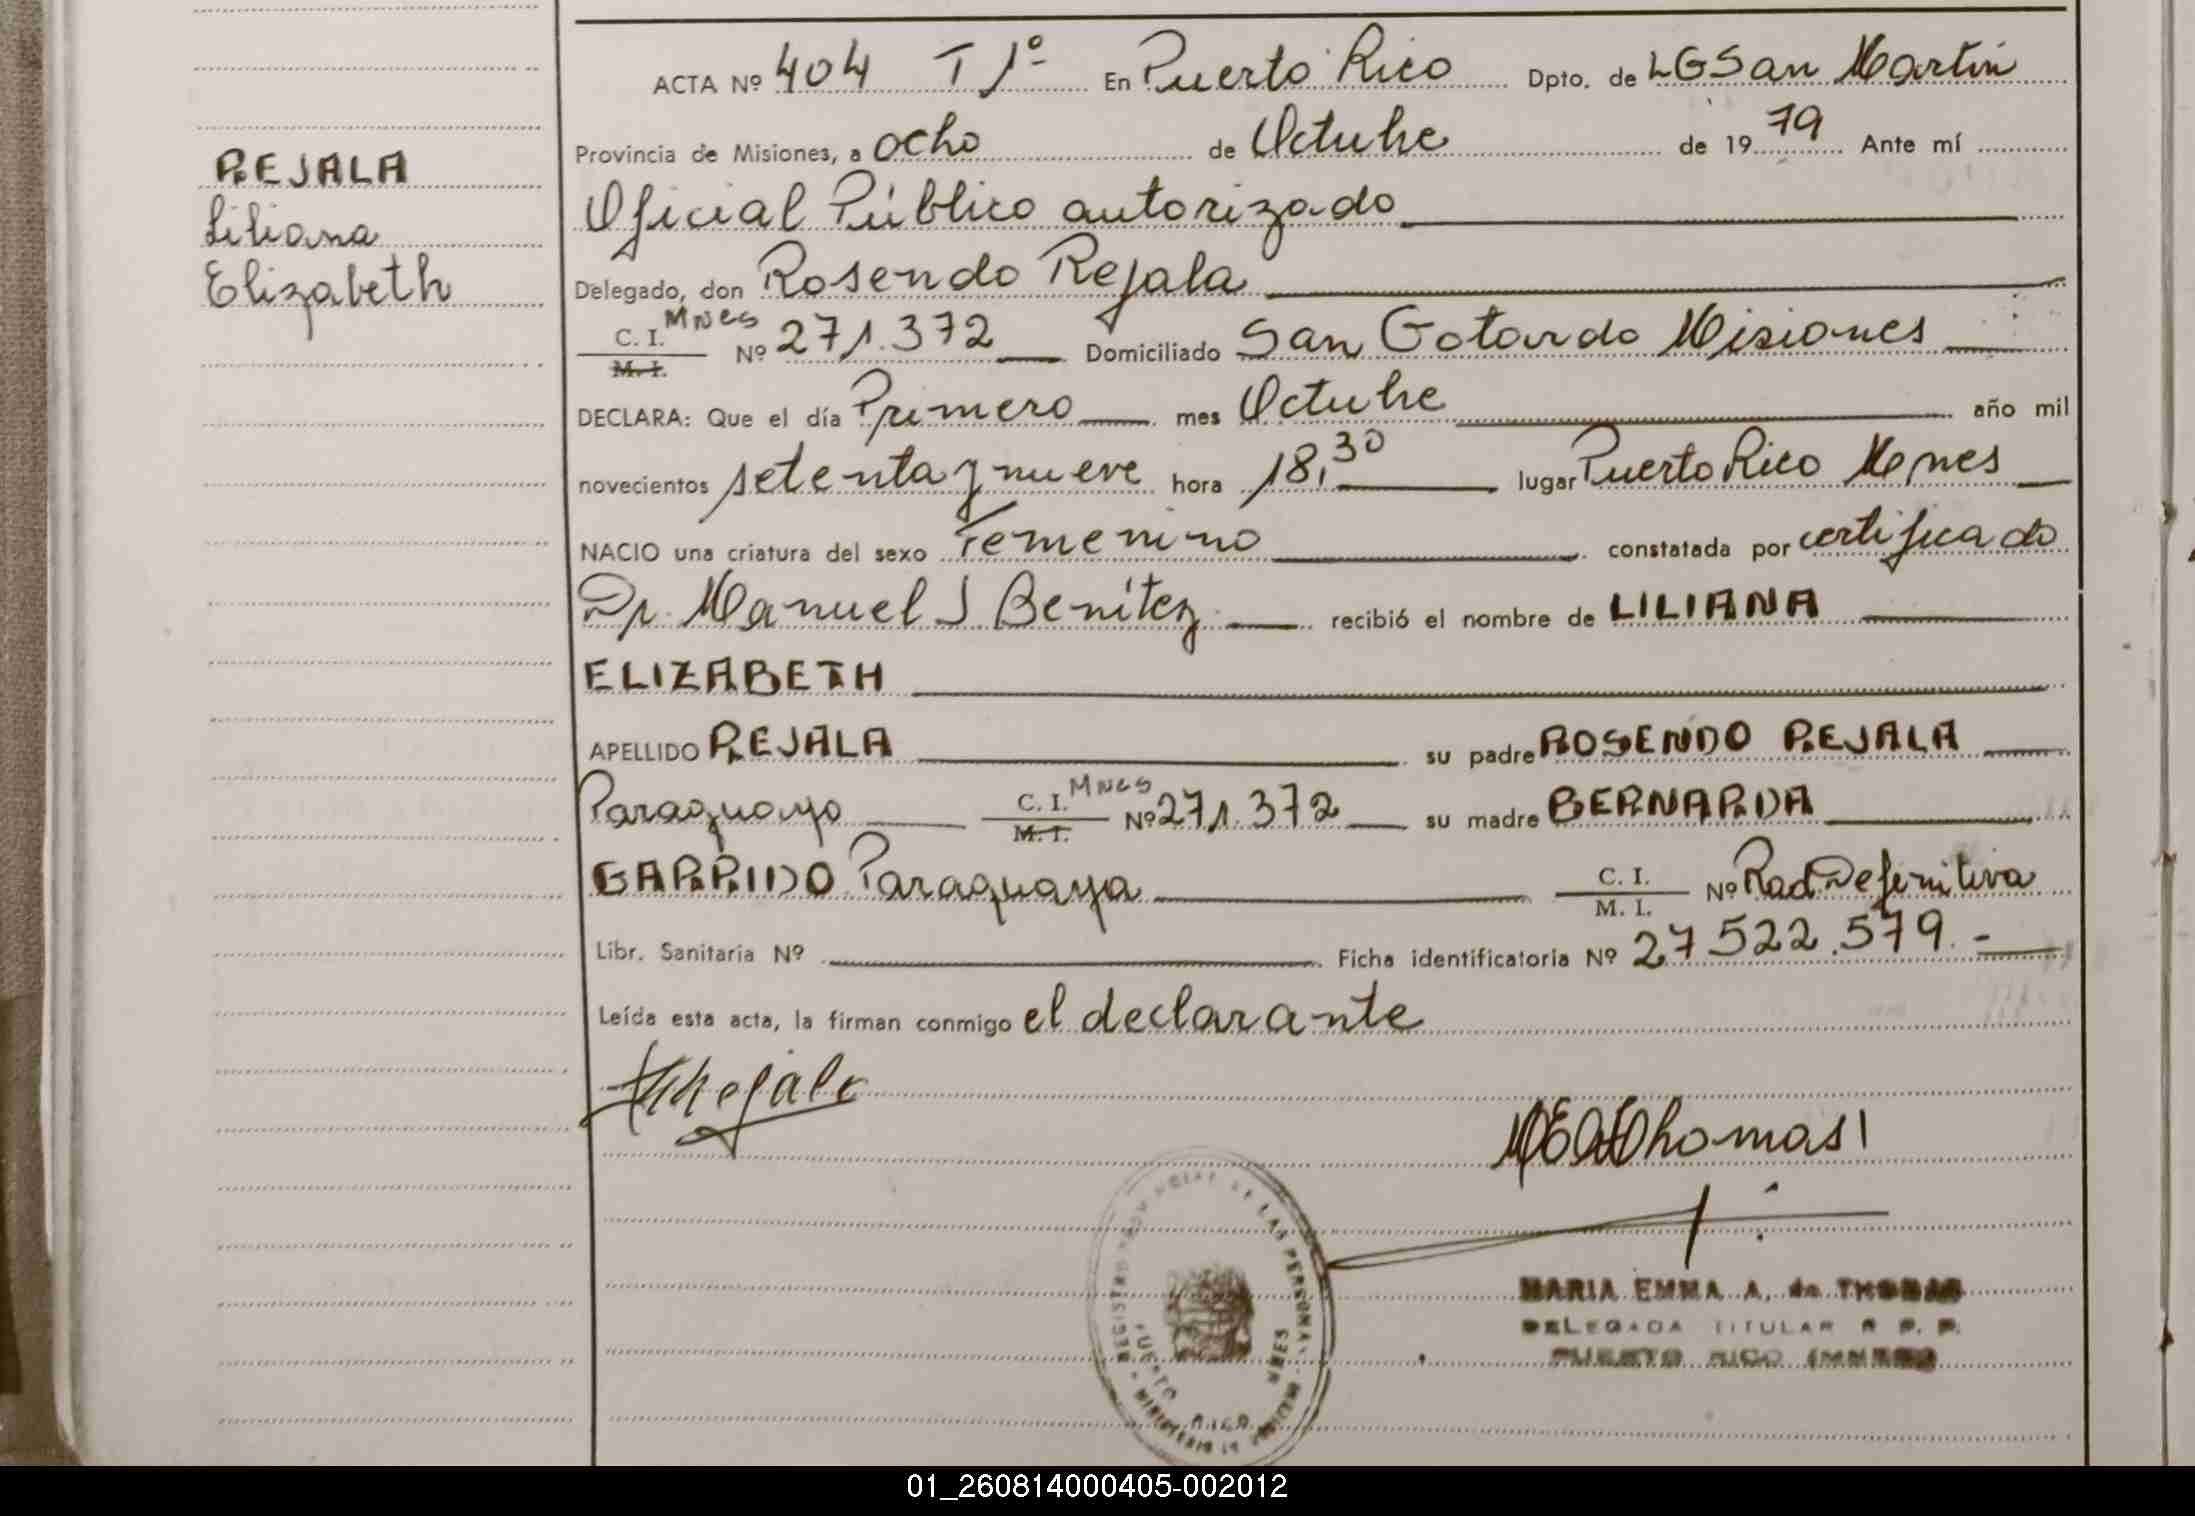 REJALA
Liliana
Elizabeth
ACTA Nº 404 T 1º En Puerto Rico Dpto. de LGSan Martín
Provincia de Misiones, a ocho de Octubre de 1979 Ante mí
Oficial Público autorizado
Delegado, don Rosendo Rejala
C. I. Mnes
M. I. Nº 271.372 Domiciliado San Gotardo Misiones
DECLARA: Que el día Primero mes Octubre año mil
novecientos setenta y nueve hora 18,30 lugar Puerto Rico Mnes
NACIO una criatura del sexo Femenino constatada por certificado
Dr. Manuel J Benítez recibió el nombre de LILIANA
ELIZABETH
APELLIDO REJALA su padre ROSENDO REJALA
Paraguayo C. I. Mnes
M. I. Nº 271.372 su madre BERNARDA
GARRIDO Paraguaya C. I.
M. I. Nº Rad Definitiva
Libr. Sanitaria Nº Ficha identificatoria Nº 27 522.579.-
Leída esta acta, la firman conmigo el declarante
Rejala
Thomas
MARIA EMMA A. de THOMAS
DELEGADA TITULAR R. P. P.
PUERTO RICO (MNES)
REGISTRO DE LAS PERSONAS
PUERTO RICO MNES
MINISTERIO DE
01_260814000405-002012